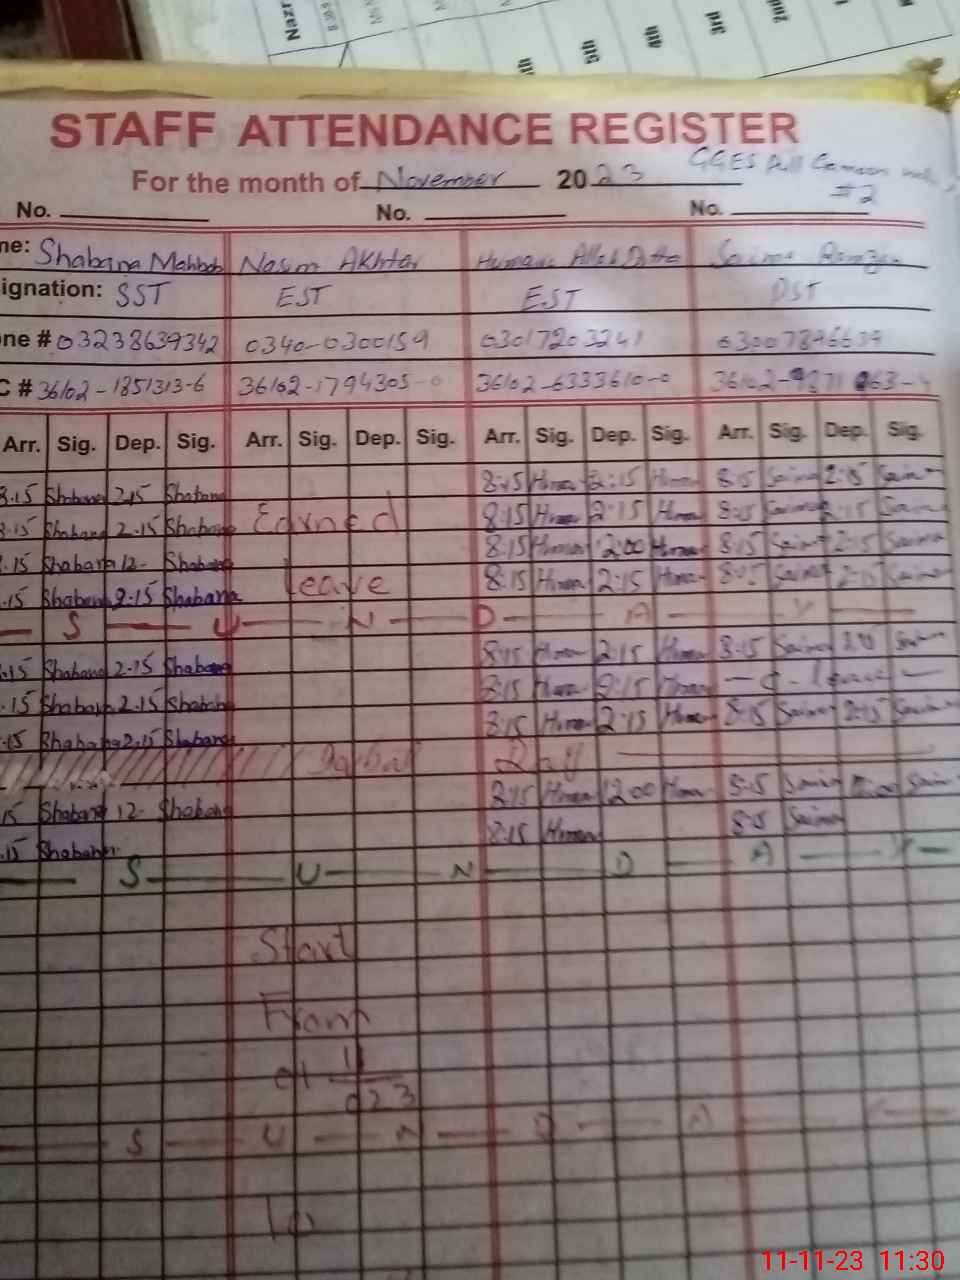 Nazr
5th
4th
3rd
2nd
STAFF ATTENDANCE REGISTER
For the month of November 2023 GGES
#2
No. No. No.
me: Shabana Mahbob Nasim Akhtar Saima
ignation: SST EST EST
one # 03238639342 0340-0300159 03017203241
C # 36102-1851313-6 36102-1794305-0 36102-6333610-0
Arr. Sig. Dep. Sig. Arr. Sig. Dep. Sig. Arr. Sig. Dep. Sig. Arr. Sig. Dep. Sig.
8.15 Shabana 2.15 Shabana 8:15 Human 2:15 Human 8:15 Saima 2:15 Saima
8.15 Shabana 2.15 Shabana Earned 8:15 Human 2:15 Human 8:15 Saima 2:15 Saima
.15 Shabana 12- Shabana 8:15 Human 12:00 Human 8:15 Saima 2:15 Saima
.15 Shabana 2.15 Shabana leave 8:15 Human 2:15 Human 8:15 Saima 2:15 Saima
S U N D A Y
.15 Shabana 2.15 Shabana 8:15 Human 2:15 Human 8:15 Saima
.15 Shabana 2.15 Shabana 8:15 Human 2:15 Human leave
.15 Shabana 2.15 Shabana 8:15 Human 2:15 Human 8:15 Saima 2:15 Saima
Day
15 Shabana 12- Shabana 8:15 Human 1200 Human 8:15 Saima Saima
.15 Shabana 8:15 Human 8:15 Saima
S U N D A Y
Start
From
S U N D A
11-11-23 11:30